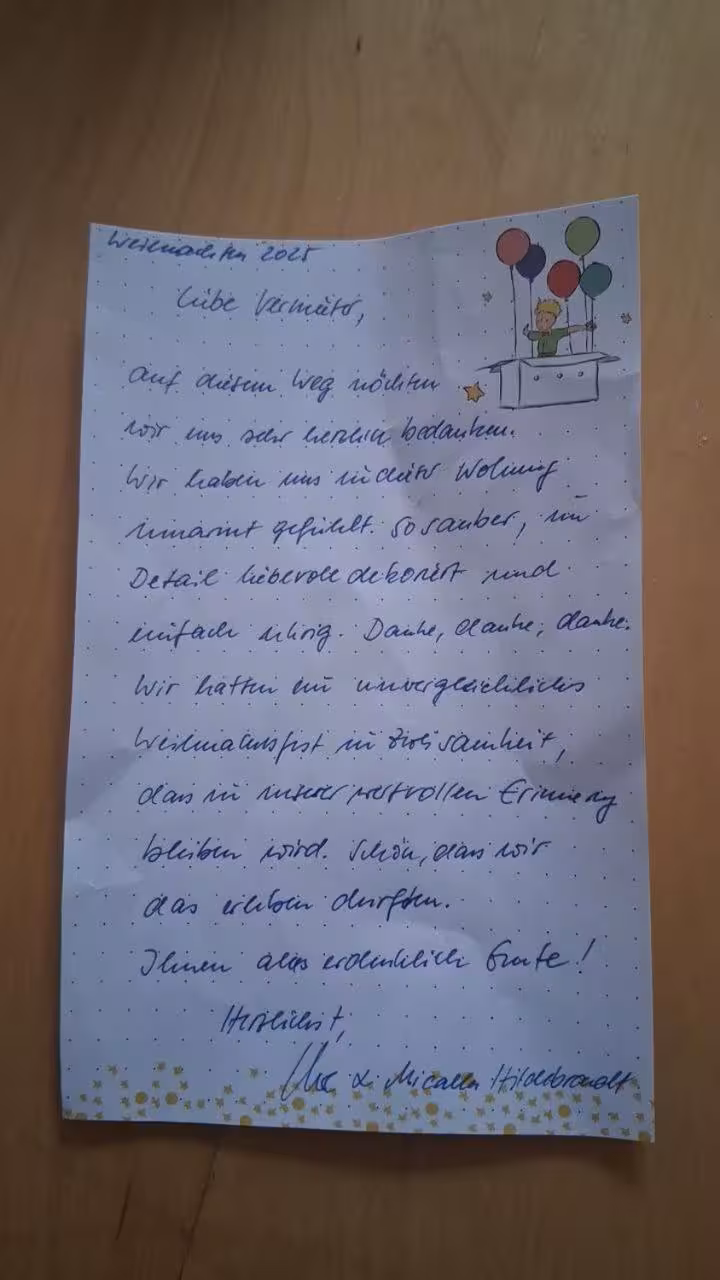 Weihnachten 2025
Liebe Vermieter,
auf diesem Weg möchten
wir uns sehr herzlich bedanken.
Wir haben uns in dieser Wohnung
umarmt gefühlt. So sauber, im
Detail liebevoll dekoriert und
einfach ruhig. Danke, danke, danke.
Wir hatten ein unvergleichliches
Weihnachtsfest in Zweisamkeit,
das in unserer wertvollen Erinnerung
bleiben wird. Schön, dass wir
das erleben durften.
Ihnen alles erdenklich Gute!
Herzlichst,
& Micaela Hildebrandt